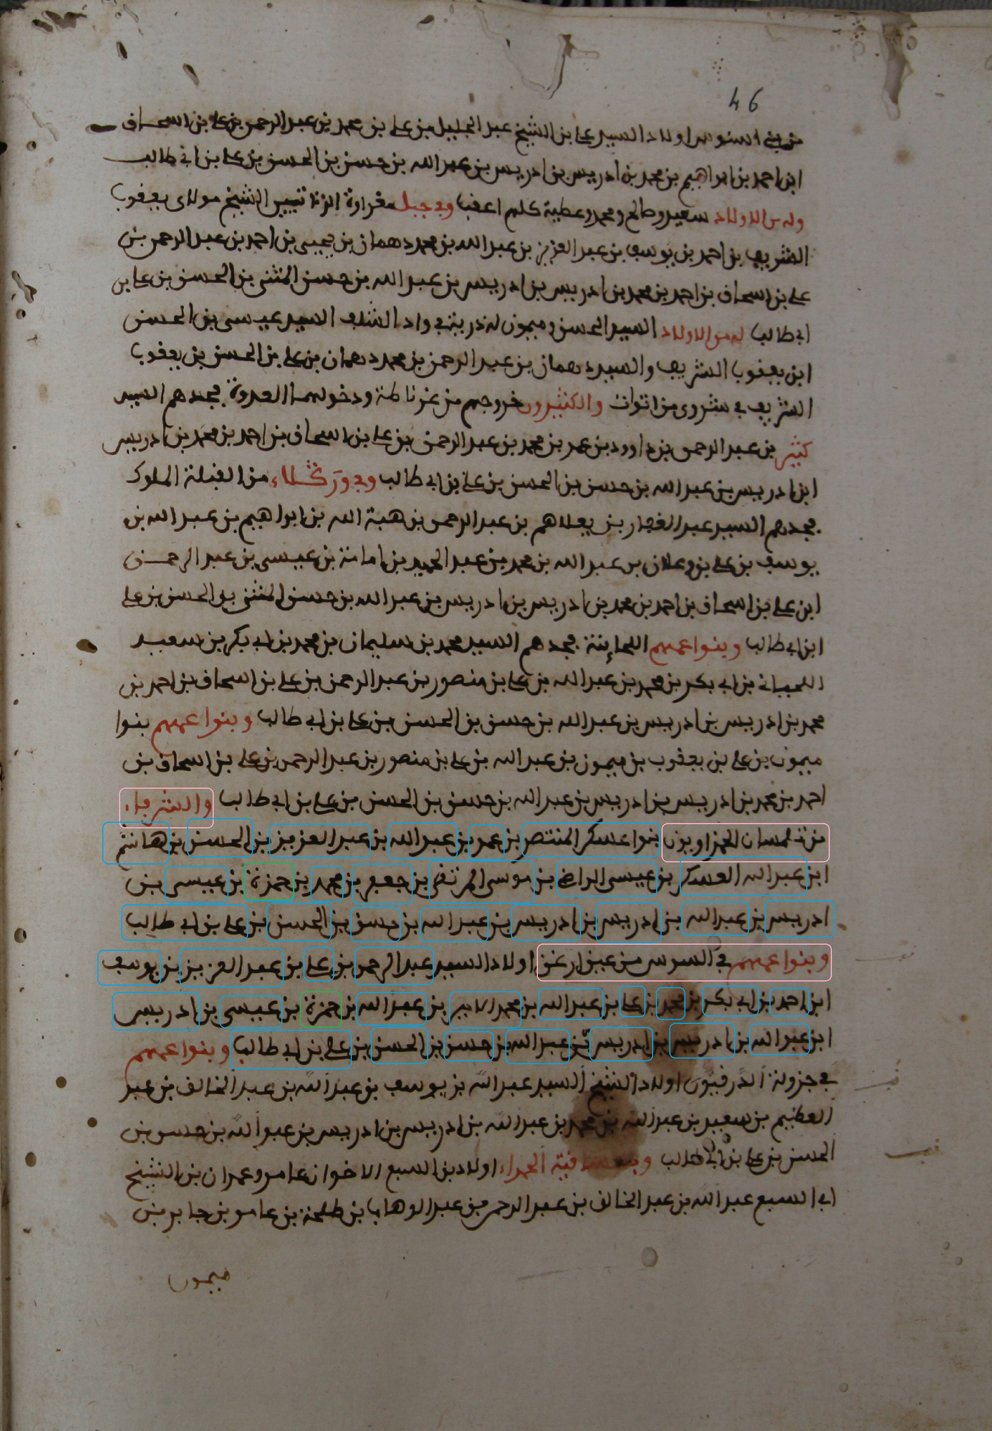 46
من بني السنوس اولاد السيد علي بن الشيخ عبد الجليل بن علي بن محمد بن عبد الرحمن بن علي بن اسحاف
ابن احمد بن ابراهيم بن محمد بن ادريس بن ادريس بن عبد الله بن حسن بن الحسن بن علي بن ابي طالب
وله من الاولاد سعيد وصالح ومحمد وعطية كلهم اعقبا وبجبل مغراوة الزناتيين الشيخ مولاي يعقوب
الشريف بن احمد بن يوسف بن عبد العزيز بن عبد الله بن محمد دهمان بن يحيى بن احمد بن عبد الرحمن بن
علي بن اسحاف بن احمد بن محمد بن ادريس بن ادريس بن عبد الله بن حسن المثنى بن الحسن بن علي بن
ابي طالب له من الاولاد السيد الحسن وميمون له ذرية في واد الشلف السيد عيسى بن الحسن
ابن يعقوب الشريف والسيد دهمان بن عبد الرحمن بن محمد دهمان بن علي بن الحسن بن يعقوب
الشريف في والكثيرون خروجهم من غرناطة ودخولهم العدوة فجدهم السيد
كثير بن عبد الرحمن بن داوود بن عمر بن محمد بن عبد الرحمن بن علي بن اسحاف بن احمد بن محمد بن ادريس
ابن ادريس بن عبد الله بن حسن بن الحسن بن علي بن ابي طالب من القبلة الملوك
فجدهم السيد عبد الغفار بن يعلاهم بن عبد الرحمن بن هبة الله بن ابراهيم بن عبد الله بن
يوسف بن علي بن وعلان بن عبد الله بن محمد بن عبد الحميد بن امامنة بن عيسى بن عبد الرحمن
ابن علي بن اسحاف بن احمد بن محمد بن ادريس بن ادريس بن عبد الله بن حسن المثنى بن الحسن بن علي
ابن ابي طالب وبنوا عمهم فجدهم السيد محمد بن سليمان بن محمد بن ابي بكر بن سعيد
بن ابي بكر بن محمد بن عبد الله بن علي بن منصور بن عبد الرحمن بن علي بن اسحاف بن احمد بن
محمد بن ادريس بن ادريس بن عبد الله بن حسن بن الحسن بن علي بن ابي طالب وبنوا عمهم بنوا
ميمون بن علي بن يعقوب بن ميمون بن عبد الله بن علي بن منصور بن عبد الرحمن بن علي بن اسحاف بن
احمد بن محمد بن ادريس بن ادريس بن عبد الله بن حسن بن الحسن بن علي بن ابي طالب والشرفاء
من تلمسان الحمزاويون بنوا عسكر المنتصر بن عمر بن عبد الله بن عبد العزيز بن الحسن بن هاشم
ابن عبد الله العسكر بن عيسى الراضي بن موسى المرتضى بن جعفر بن محمد بن حمزة بن عيسى بن
ادريس بن عبد الله بن ادريس بن ادريس بن عبد الله بن حسن بن الحسن بن علي بن ابي طالب
وبنوا عمهم في السوس من عين ارغن اولاد السيد عبد الرحمن بن علي بن عبد العزيز بن يوسف
ابن احمد بن ابي بكر بن محمد بن علي بن عبد الله بن محمد الامير بن عبد الله بن حمزة بن عيسى بن ادريس
ابن عبد الله بن ادريس بن ادريس بن عبد الله بن حسن بن الحسن بن علي بن ابي طالب وبنوا عمهم
في جزولة الدرفيون اولاد الشيخ السيد عبد الله بن يوسف بن عبد الله بن عبد الخالف بن عبد
العظيم بن سعيد بن عبد الله بن محمد بن عبد الله بن ادريس بن ادريس بن عبد الله بن حسن بن
الحسن بن علي بن ابي طالب الحمراء اولاد بن السبع الاخوان عامر وعمران بن الشيخ
ابي السبع عبد الله بن عبد الخالف بن عبد الرحمن بن عبد الوهاب بن طلحة بن عامر بن جابر بن
ميمون